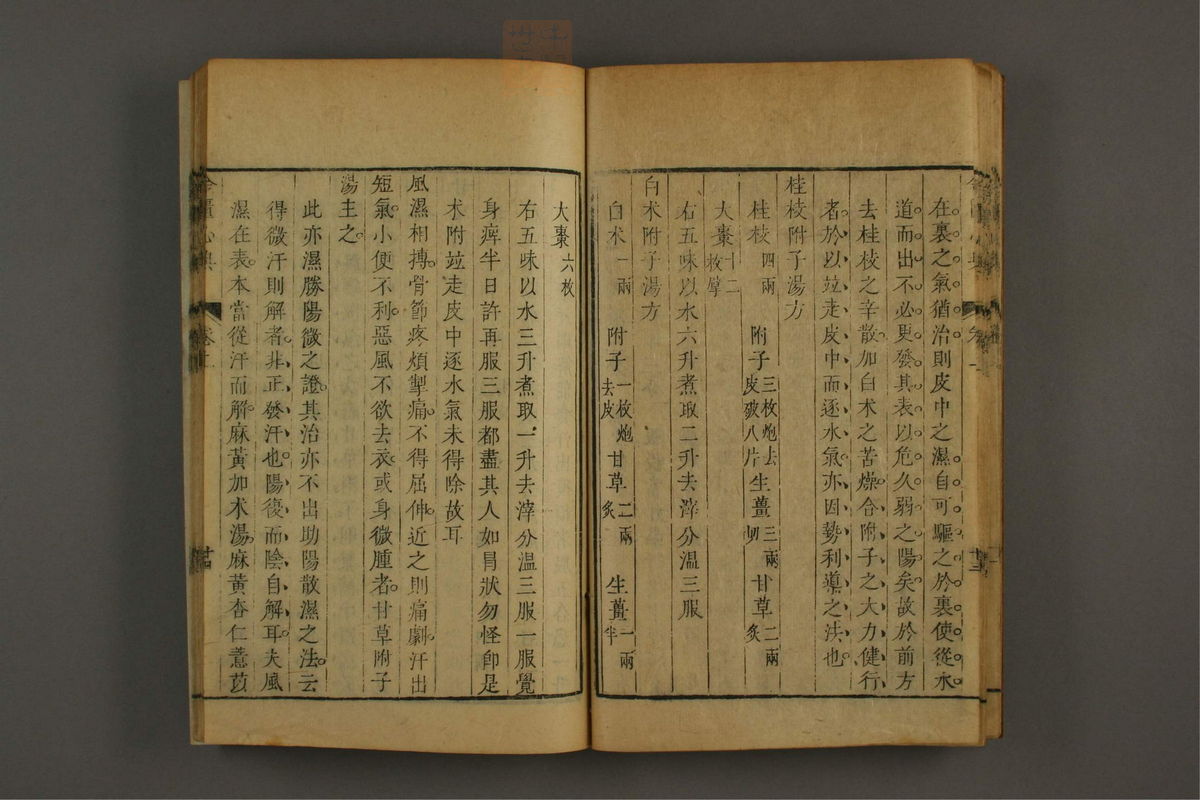 在裏之氣猶治則皮中之濕自可驅之於裏使從水
道而出不必更發其表以危久弱之陽矣故於前方
去桂枝之辛散加白术之苦燥合附子之大力健行
者於以竝走皮中而逐水氣亦因勢利導之法也
桂枝附子湯方
桂枝四兩 附子三枚炮去皮破八片 生薑三兩切 甘草二兩炙
大棗十二枚擘
右五味以水六升煮取二升去滓分温三服
白术附子湯方
白术一兩 附子一枚炮去皮 甘草二兩炙 生薑一兩半
大棗六枚
右五味以水三升煮取一升去滓分温三服一服覺
身痺半日許再服三服都盡其人如冒狀勿怪卽是
术附竝走皮中逐水氣未得除故耳
風濕相搏骨節疼煩掣痛不得屈伸近之則痛劇汗出
短氣小便不利惡風不欲去衣或身微腫者甘草附子
湯主之
此亦濕勝陽微之證其治亦不出助陽散濕之法云
得微汗則解者非正發汗也陽復而陰自解耳夫風
濕在表本當從汗而解麻黃加术湯麻黃杏仁薏苡
心典
卷上
十四